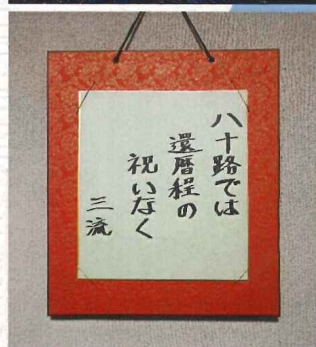 八十路では
還暦程の
祝いなく
三流